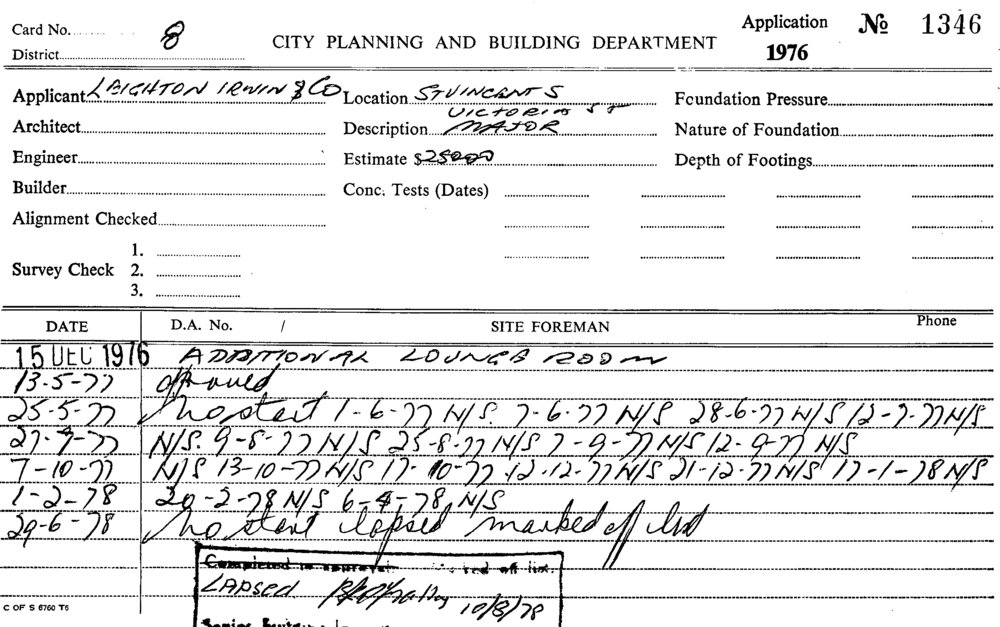 Card No. 8
District
CITY PLANNING AND BUILDING DEPARTMENT
Application № 1346
1976
Applicant LEIGHTON IRWIN & CO Location ST VINCENTS Foundation Pressure
VICTORIA ST
Architect Description MAJOR Nature of Foundation
Engineer Estimate $25000 Depth of Footings
Builder Conc. Tests (Dates)
Alignment Checked
1.
Survey Check 2.
3.
DATE D.A. No. / SITE FOREMAN Phone
15 DEC 1976 ADDITIONAL LOUNGE ROOM
13-5-77 approved
25-5-77 No start 1-6-77 N/S. 7-6-77 N/S 28-6-77 N/S 12-7-77 N/S
27-7-77 N/S. 9-8-77 N/S 25-8-77 N/S 7-9-77 N/S 12-9-77 N/S
7-10-77 N/S 13-10-77 N/S 17-10-77 12-12-77 N/S 21-12-77 N/S 17-1-78 N/S
1-2-78 20-2-78 N/S 6-4-78 N/S
29-6-78 No start lapsed marked off list
Completed in off list.
LAPSED 10/8/78
C OF S 6760 T6